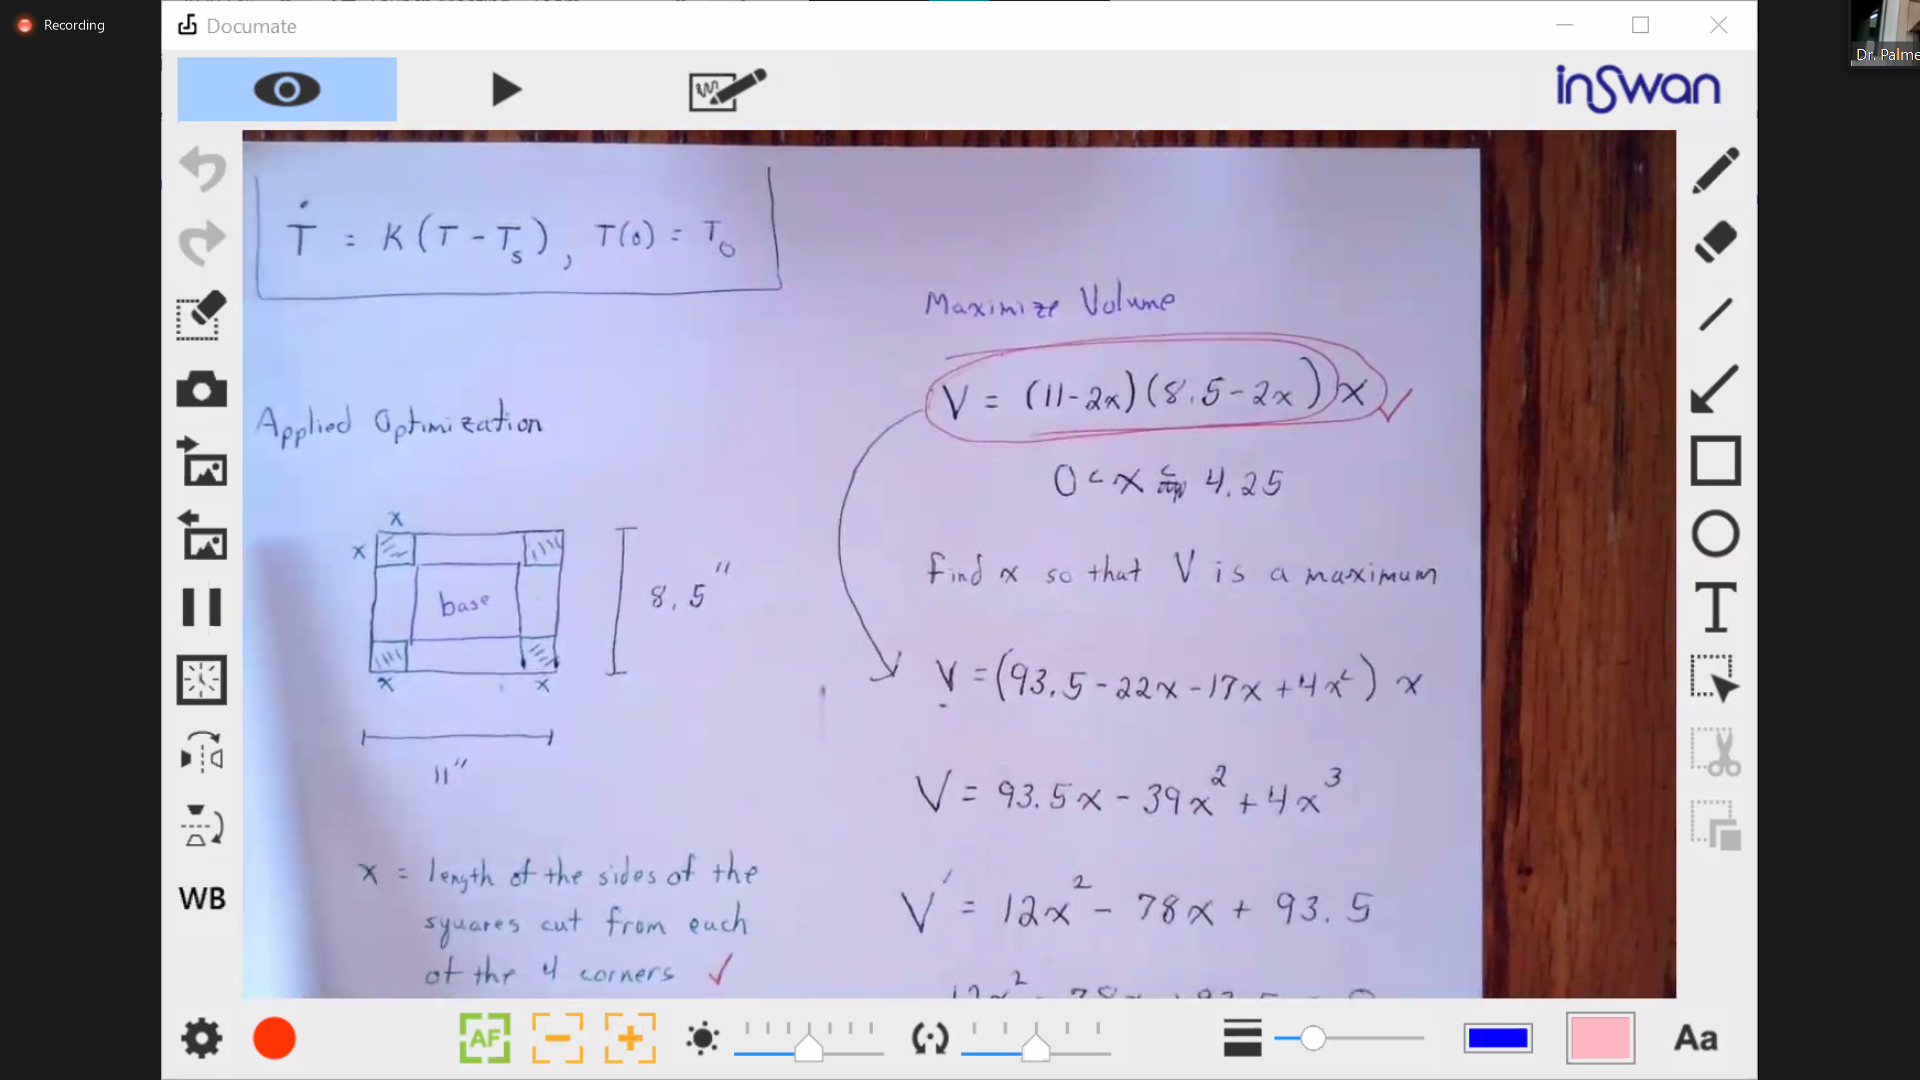 Recording
Documate
Dr. Palme
inSwan
Ṫ = K(T - Tₛ), T(0) = T₀
Applied Optimization
x
x
base
8.5"
x
x
11"
x = length of the sides of the
squares cut from each
of the 4 corners ✓
Maximize Volume
V = (11-2x)(8.5-2x)x ✓
0 < x < 4.25
find x so that V is a maximum
V = (93.5 - 22x - 17x + 4x²) x
V = 93.5x - 39x² + 4x³
V' = 12x² - 78x + 93.5
WB
AF
T
Aa